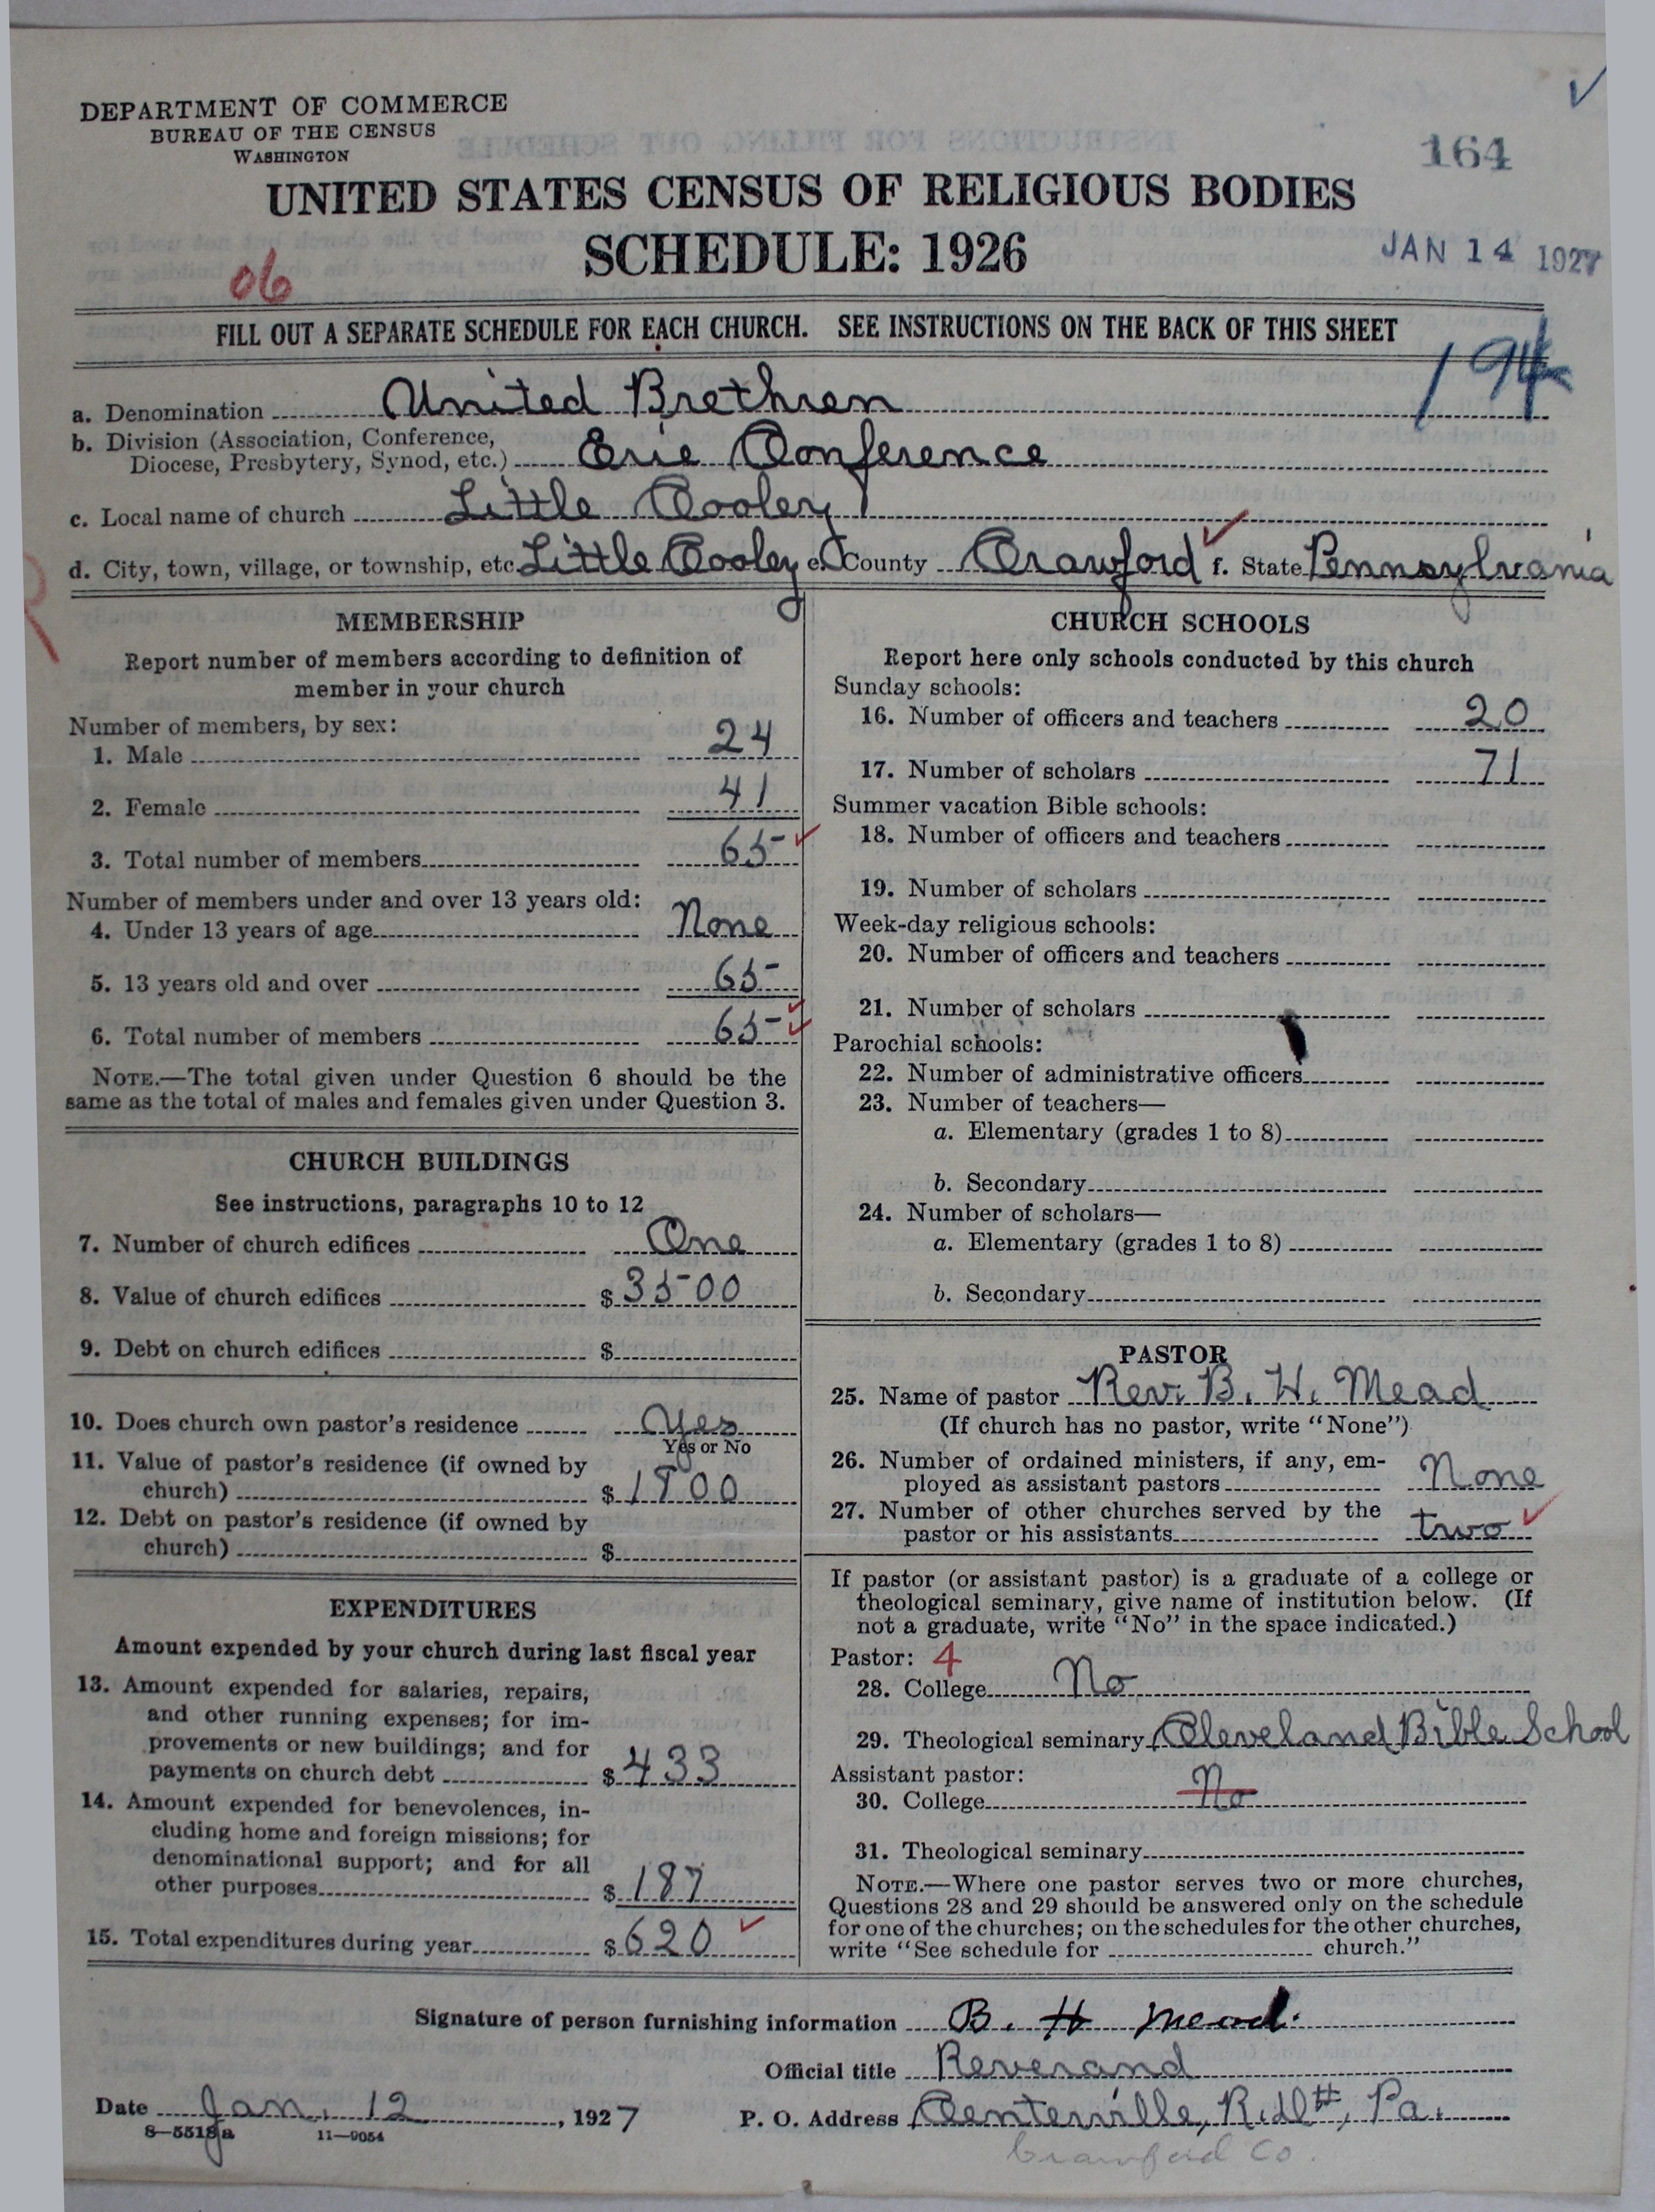 DEPARTMENT OF COMMERCE
BUREAU OF THE CENSUS
WASHINGTON
164
UNITED STATES CENSUS OF RELIGIOUS BODIES
SCHEDULE: 1926
JAN 14 1927
06
FILL OUT A SEPARATE SCHEDULE FOR EACH CHURCH. SEE INSTRUCTIONS ON THE BACK OF THIS SHEET
194
a. Denomination United Brethren
b. Division (Association, Conference,
Diocese, Presbytery, Synod, etc.) Erie Conference
c. Local name of church Little Cooley
d. City, town, village, or township, etc. Little Cooley e. County Crawford f. State Pennsylvania
R
MEMBERSHIP
Report number of members according to definition of
member in your church
Number of members, by sex:
1. Male 24
2. Female 41
3. Total number of members 65
Number of members under and over 13 years old:
4. Under 13 years of age None
5. 13 years old and over 65
6. Total number of members 65
NOTE.—The total given under Question 6 should be the
same as the total of males and females given under Question 3.
CHURCH BUILDINGS
See instructions, paragraphs 10 to 12
7. Number of church edifices One
8. Value of church edifices $ 3500
9. Debt on church edifices $
10. Does church own pastor's residence Yes
Yes or No
11. Value of pastor's residence (if owned by
church) $ 1800
12. Debt on pastor's residence (if owned by
church) $
EXPENDITURES
Amount expended by your church during last fiscal year
13. Amount expended for salaries, repairs,
and other running expenses; for im-
provements or new buildings; and for
payments on church debt $ 433
14. Amount expended for benevolences, in-
cluding home and foreign missions; for
denominational support; and for all
other purposes $ 187
15. Total expenditures during year $ 620
CHURCH SCHOOLS
Report here only schools conducted by this church
Sunday schools:
16. Number of officers and teachers 20
17. Number of scholars 71
Summer vacation Bible schools:
18. Number of officers and teachers
19. Number of scholars
Week-day religious schools:
20. Number of officers and teachers
21. Number of scholars
Parochial schools:
22. Number of administrative officers
23. Number of teachers—
a. Elementary (grades 1 to 8)
b. Secondary
24. Number of scholars—
a. Elementary (grades 1 to 8)
b. Secondary
PASTOR
25. Name of pastor Rev. B. H. Mead
(If church has no pastor, write "None")
26. Number of ordained ministers, if any, em-
ployed as assistant pastors None
27. Number of other churches served by the
pastor or his assistants two
If pastor (or assistant pastor) is a graduate of a college or
theological seminary, give name of institution below. (If
not a graduate, write "No" in the space indicated.)
Pastor: 4
28. College No
29. Theological seminary Cleveland Bible School
Assistant pastor:
30. College No
31. Theological seminary
NOTE.—Where one pastor serves two or more churches,
Questions 28 and 29 should be answered only on the schedule
for one of the churches; on the schedules for the other churches,
write "See schedule for church."
Signature of person furnishing information B. H Mead.
Official title Reverand
Date Jan. 12, 1927 P. O. Address Centerville, Pa.
8—5518a 11—9054
Crawford Co.